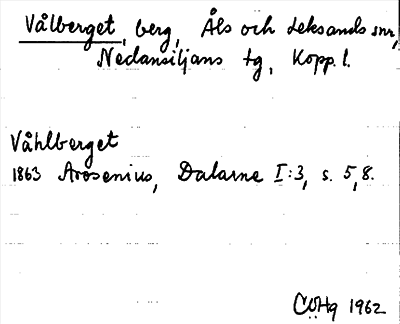 Vålberget, berg, Åls och Leksands snr,
Nedansiljans tg, Kopp. l.
Våhlberget
1863 Arosenius, Dalarne I:3, s. 5,8.
CÖHg 1962